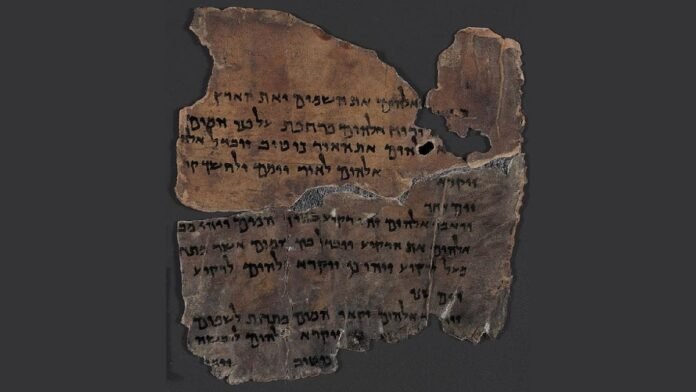 אלהים את השמים ואת הארץ
ורוח אלהים מרחפת על פני המים
להים את האור כי טוב ויבדל אלה
אלהים לאור יומם ולחשך ק
ויום אחד
ויאמר אלהים יהי רקיע בתוך המים ויהי מב
אלהים את הרקיע ויבדל בין המים אשר מתח
מעל לרקיע ויהי כן ויקרא אלהים לרקיע
יום שני
אלהים יקאו המים מתחת לשמים
ויקרא אלהים ליבשה
כי טוב